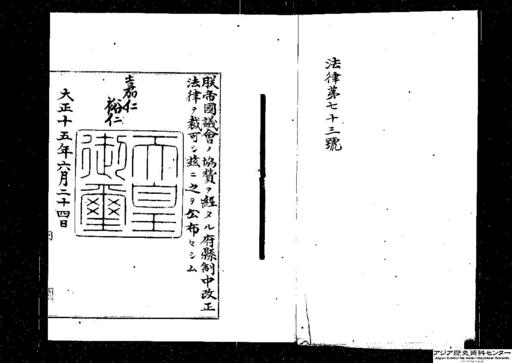 法律第七十三號
朕帝國議會ノ協賛ヲ經タル府縣制中改正
法律ヲ裁可シ玆ニ之ヲ公布セシム
嘉仁
裕仁
天皇
御璽
大正十五年六月二十四日
アジア歴史資料センター
Japan Center for Asian Historical Records